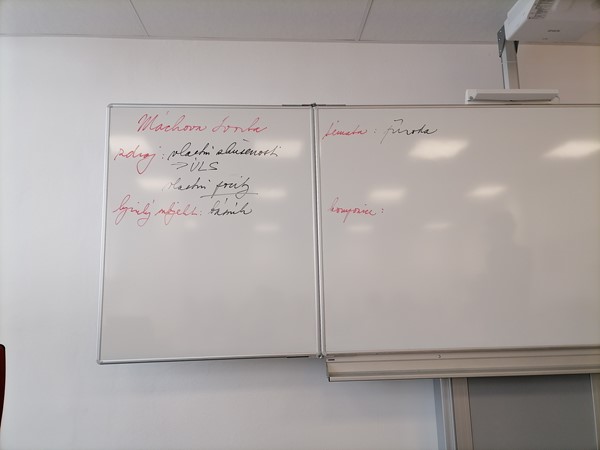 Máchova tvorba
zdroj: vlastní zkušenosti
> ÚLS
vlastní pocity
lyrický subjekt: básník
témata: příroda
kompozice: